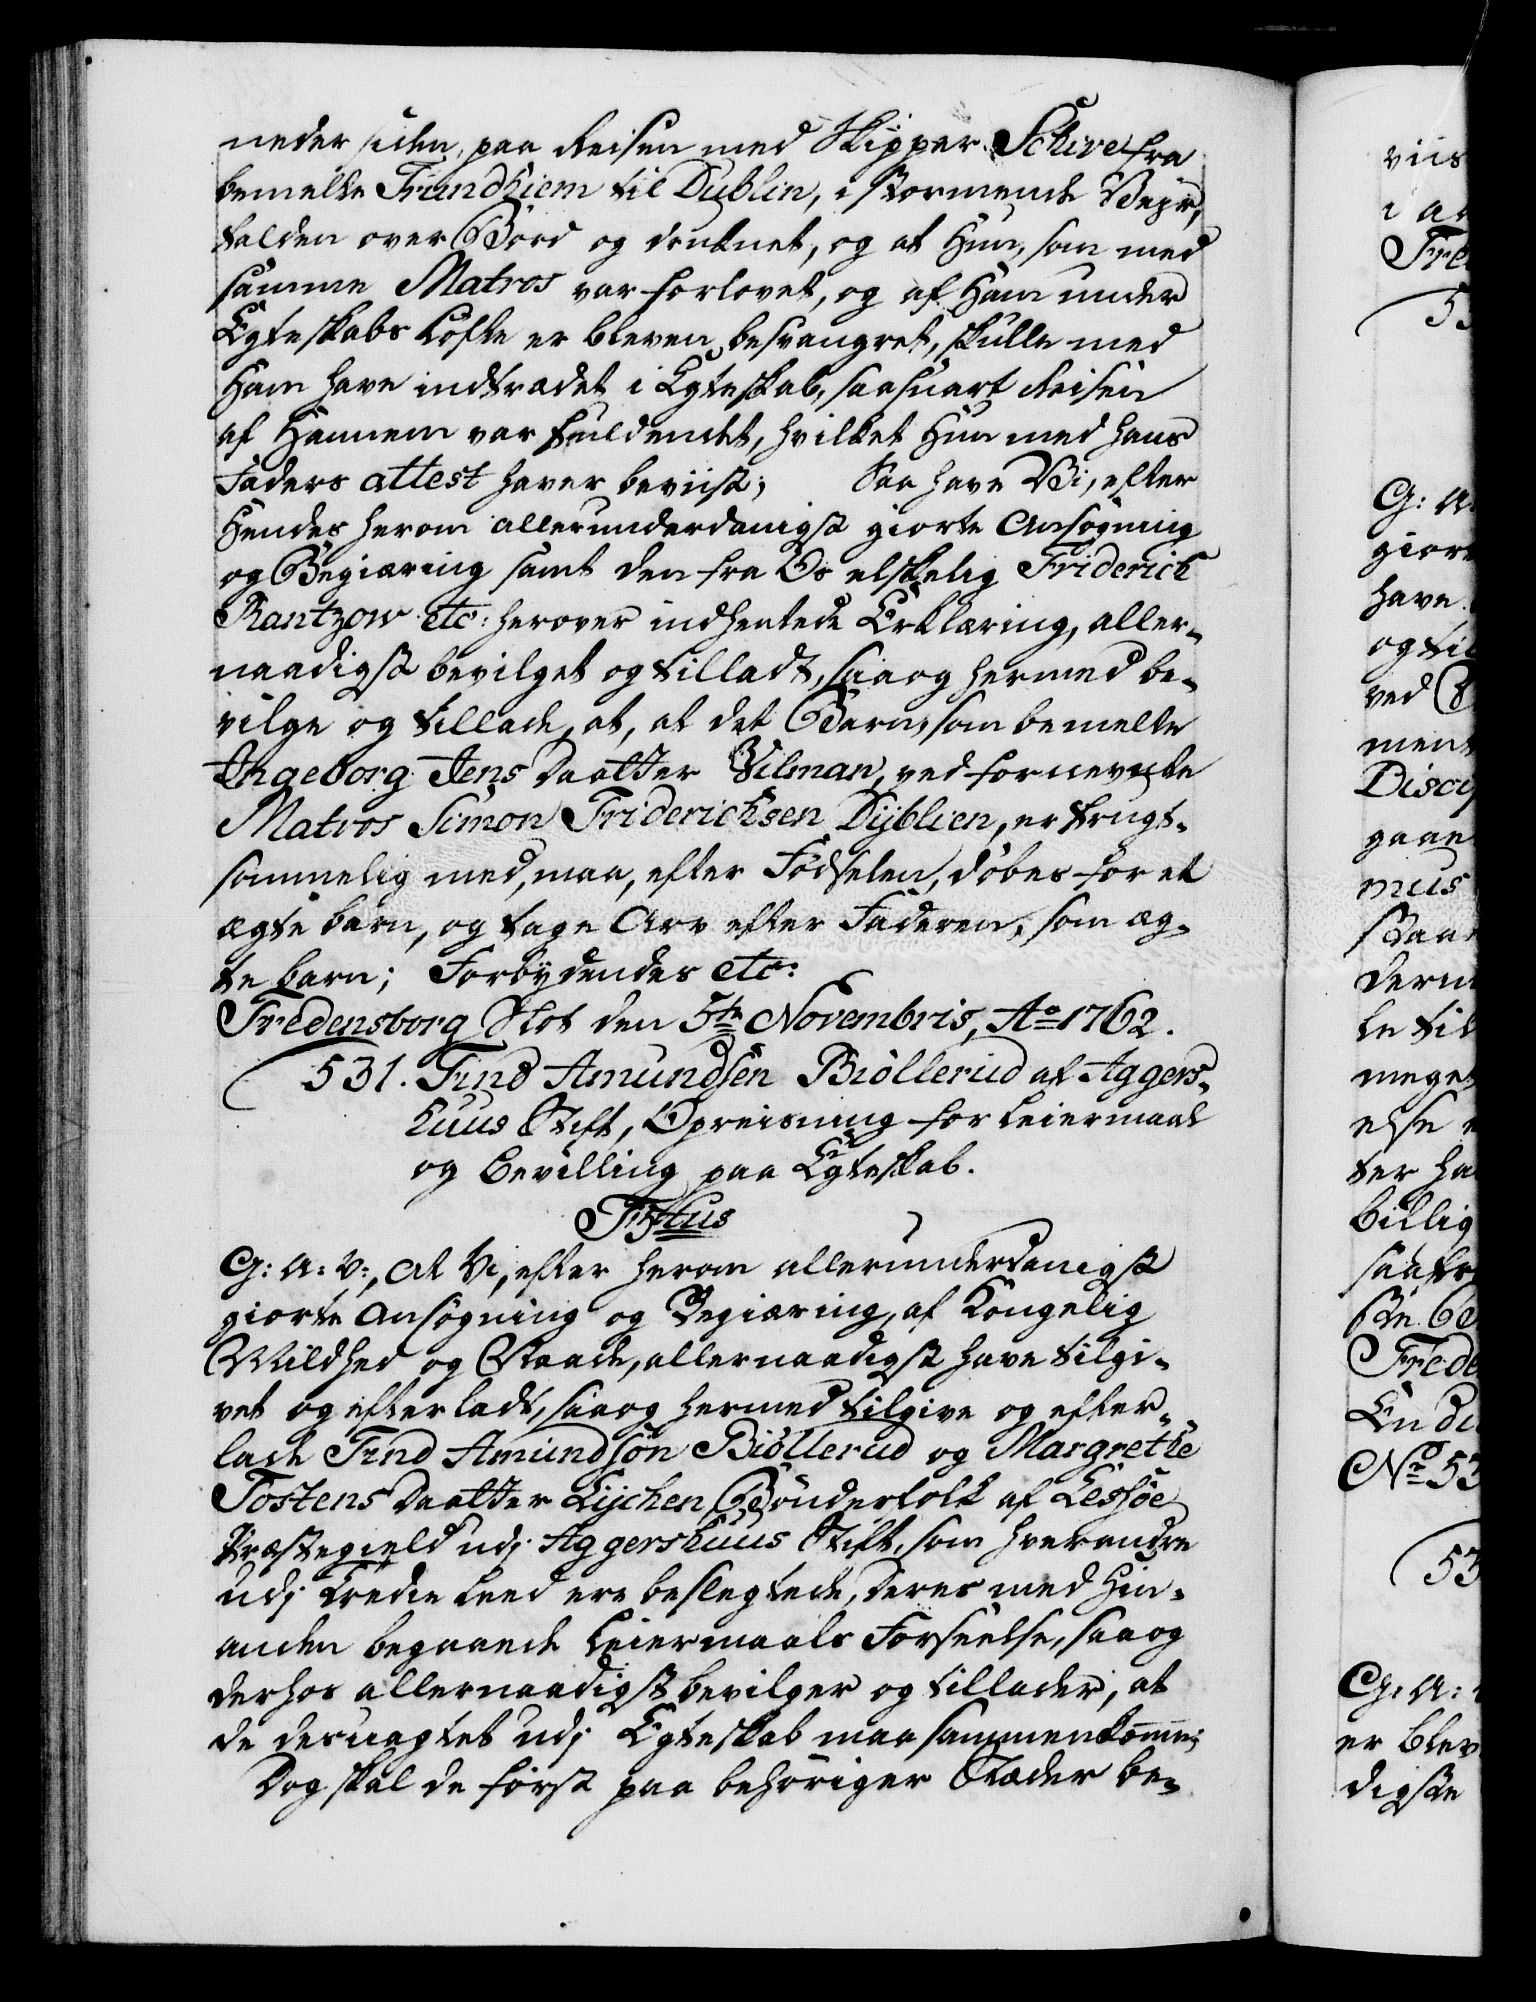 neder siden, paa Reisen med Skipper Schive fra
bemelte Trundhiem til Dublin, i stormende Veyr,
falden over Bord og druknet, og at Hun, som med
samme Matros var forlovet, og af Ham under
Egteskabs Løfte er bleven besvangret, skulle med
Ham have indtrædet i Egteskab, saasnart Reisen
af Hannem var fuldendet, hvilket Hun med hans
Faders attest haver beviist; Saa have Vi, efter
Hendes herom allerunderdanigst giorte Ansøgning
og Begiæring samt den fra Os elskelig Friderich
Rantzow etc: herover indhentede Erklæring, aller-
naadigst bevilget og tilladt, saa og hermed be-
vilge og tillade, at, at det Barn, som bemelte
Ingeborg Jens Daatter Vilman, ved fornevnte
Matros Simon Friderichsen Dÿblien, er frugt-
sommelig med, maa, efter Fødselen, døbes for et
ægte barn, og tage Arv efter Faderen, som æg-
te barn; Forbydendes etc:
Fredensborg Slot den 5te Novembris, Ao 1762.
531. Find Amundsen Biøllerud af Aggers-
huus Stift, Opreisning for Leiermaal
og Bevilling paa Egteskab.
Fr5tus
G: A: V:, At Vi, efter herom allerunderdanigst
giorte Ansøgning og Begiæring, af Kongelig
Mildhed og Naade, allernaadigst have tilgi-
vet og efterladt, saa og hermed tilgive og efter-
lade Find Amundsøn Biøllerud og Margrethe
Tostens Daatter Lijchen, Bønderfolk af Lessøe
Præstegield udj Aggershuus Stift, som hverandre
udj tredie Leed ere beslegtede, deres med Hin-
anden begaaede Leiermaals Forseelse, saa og
derhos allernaadigst bevilger og tillader, at
de desuagtet udj Egteskab maa sammenkomme;
Dog skal de først paa behøriger Stæder be-
viis
Fre
G: A
giort
have
og til
ved
ment
gaae
mus
le til
meget
else
ter ha
billig
Frede
No 53
53
G: A:
er blev
digste